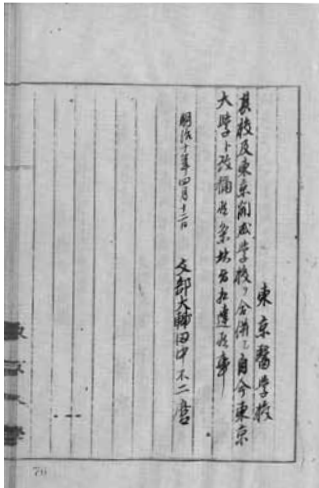 東京醫学校
其校及東京開成学校ヲ合併シ自今東京
大学ト改称候条此旨相達候事
明治十年四月十二日
文部大輔田中不二麿
70